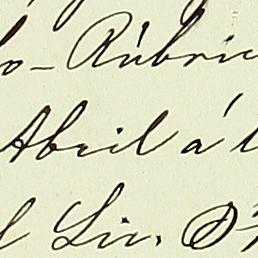 lo - Rúbric
Abril á l
l Liv. D